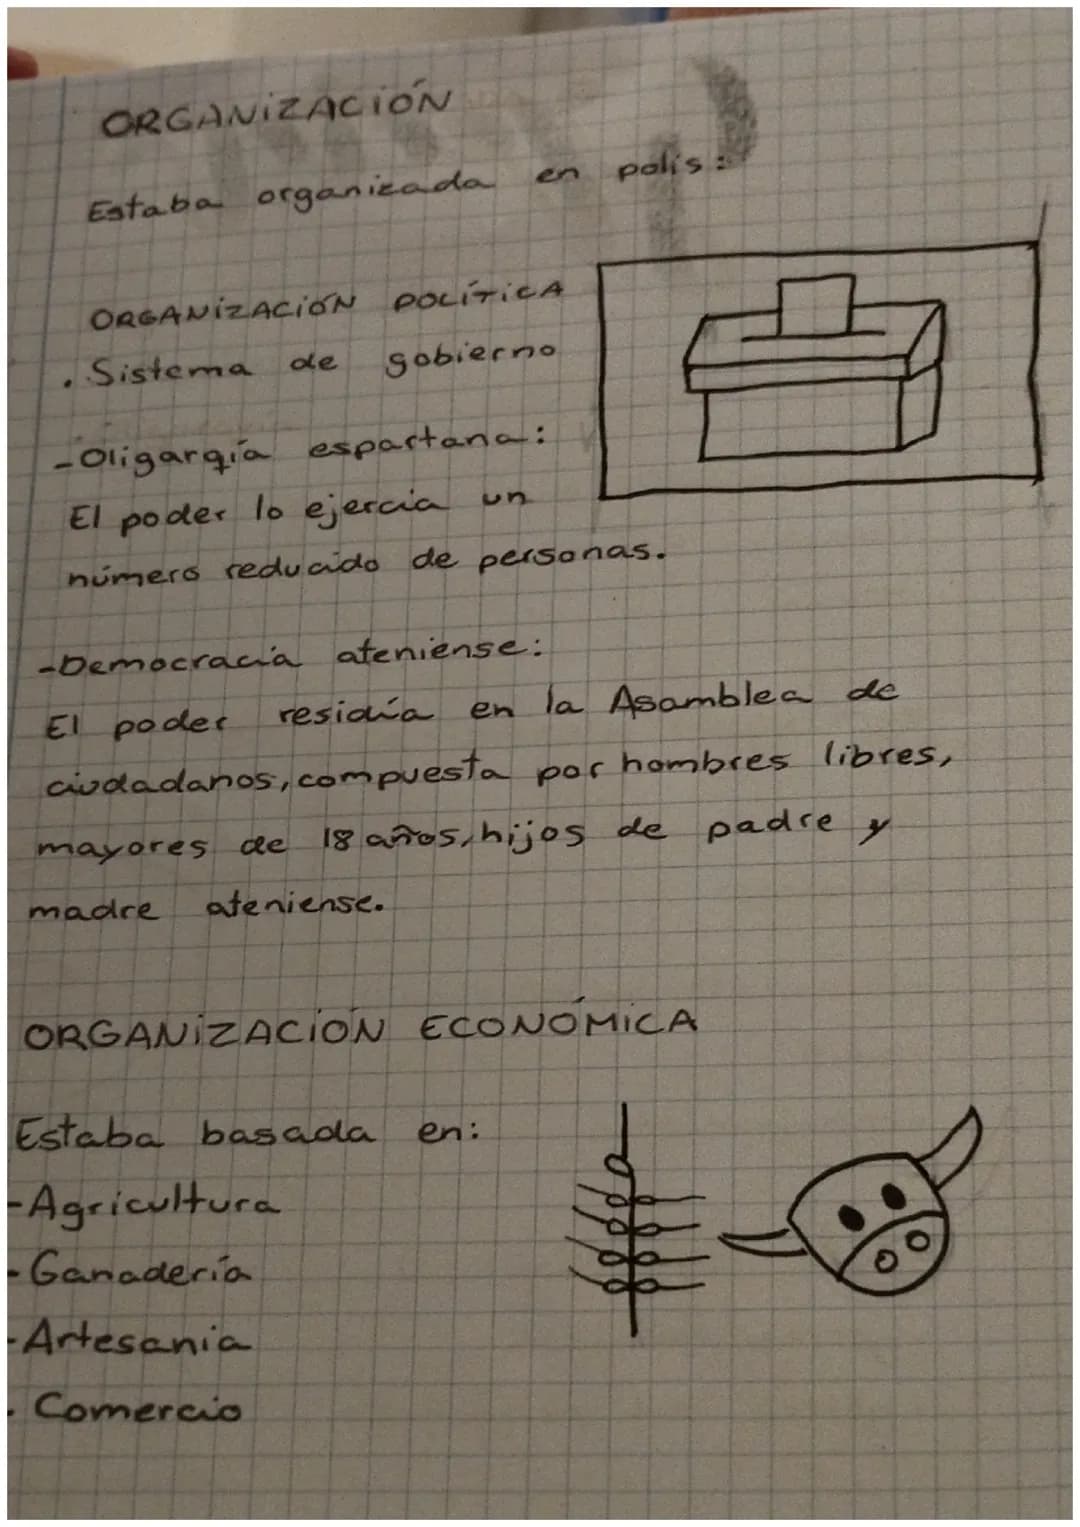 ORGANIZACIÓN
Estaba organizada en polis:
ORGANIZACIÓN POLÍTICA
. Sistema de gobierno
-Oligarqía espartana:
El poder lo ejercia un
número reducido de personas.
-Democracia ateniense:
El poder residía en la Asamblea de
ciudadanos, compuesta por hombres libres,
mayores de 18 años, hijos de padre y
madre ateniense.
ORGANIZACIÓN ECONÓMICA
Estaba basada en:
-Agricultura
-Ganadería
-Artesania
- Comercio